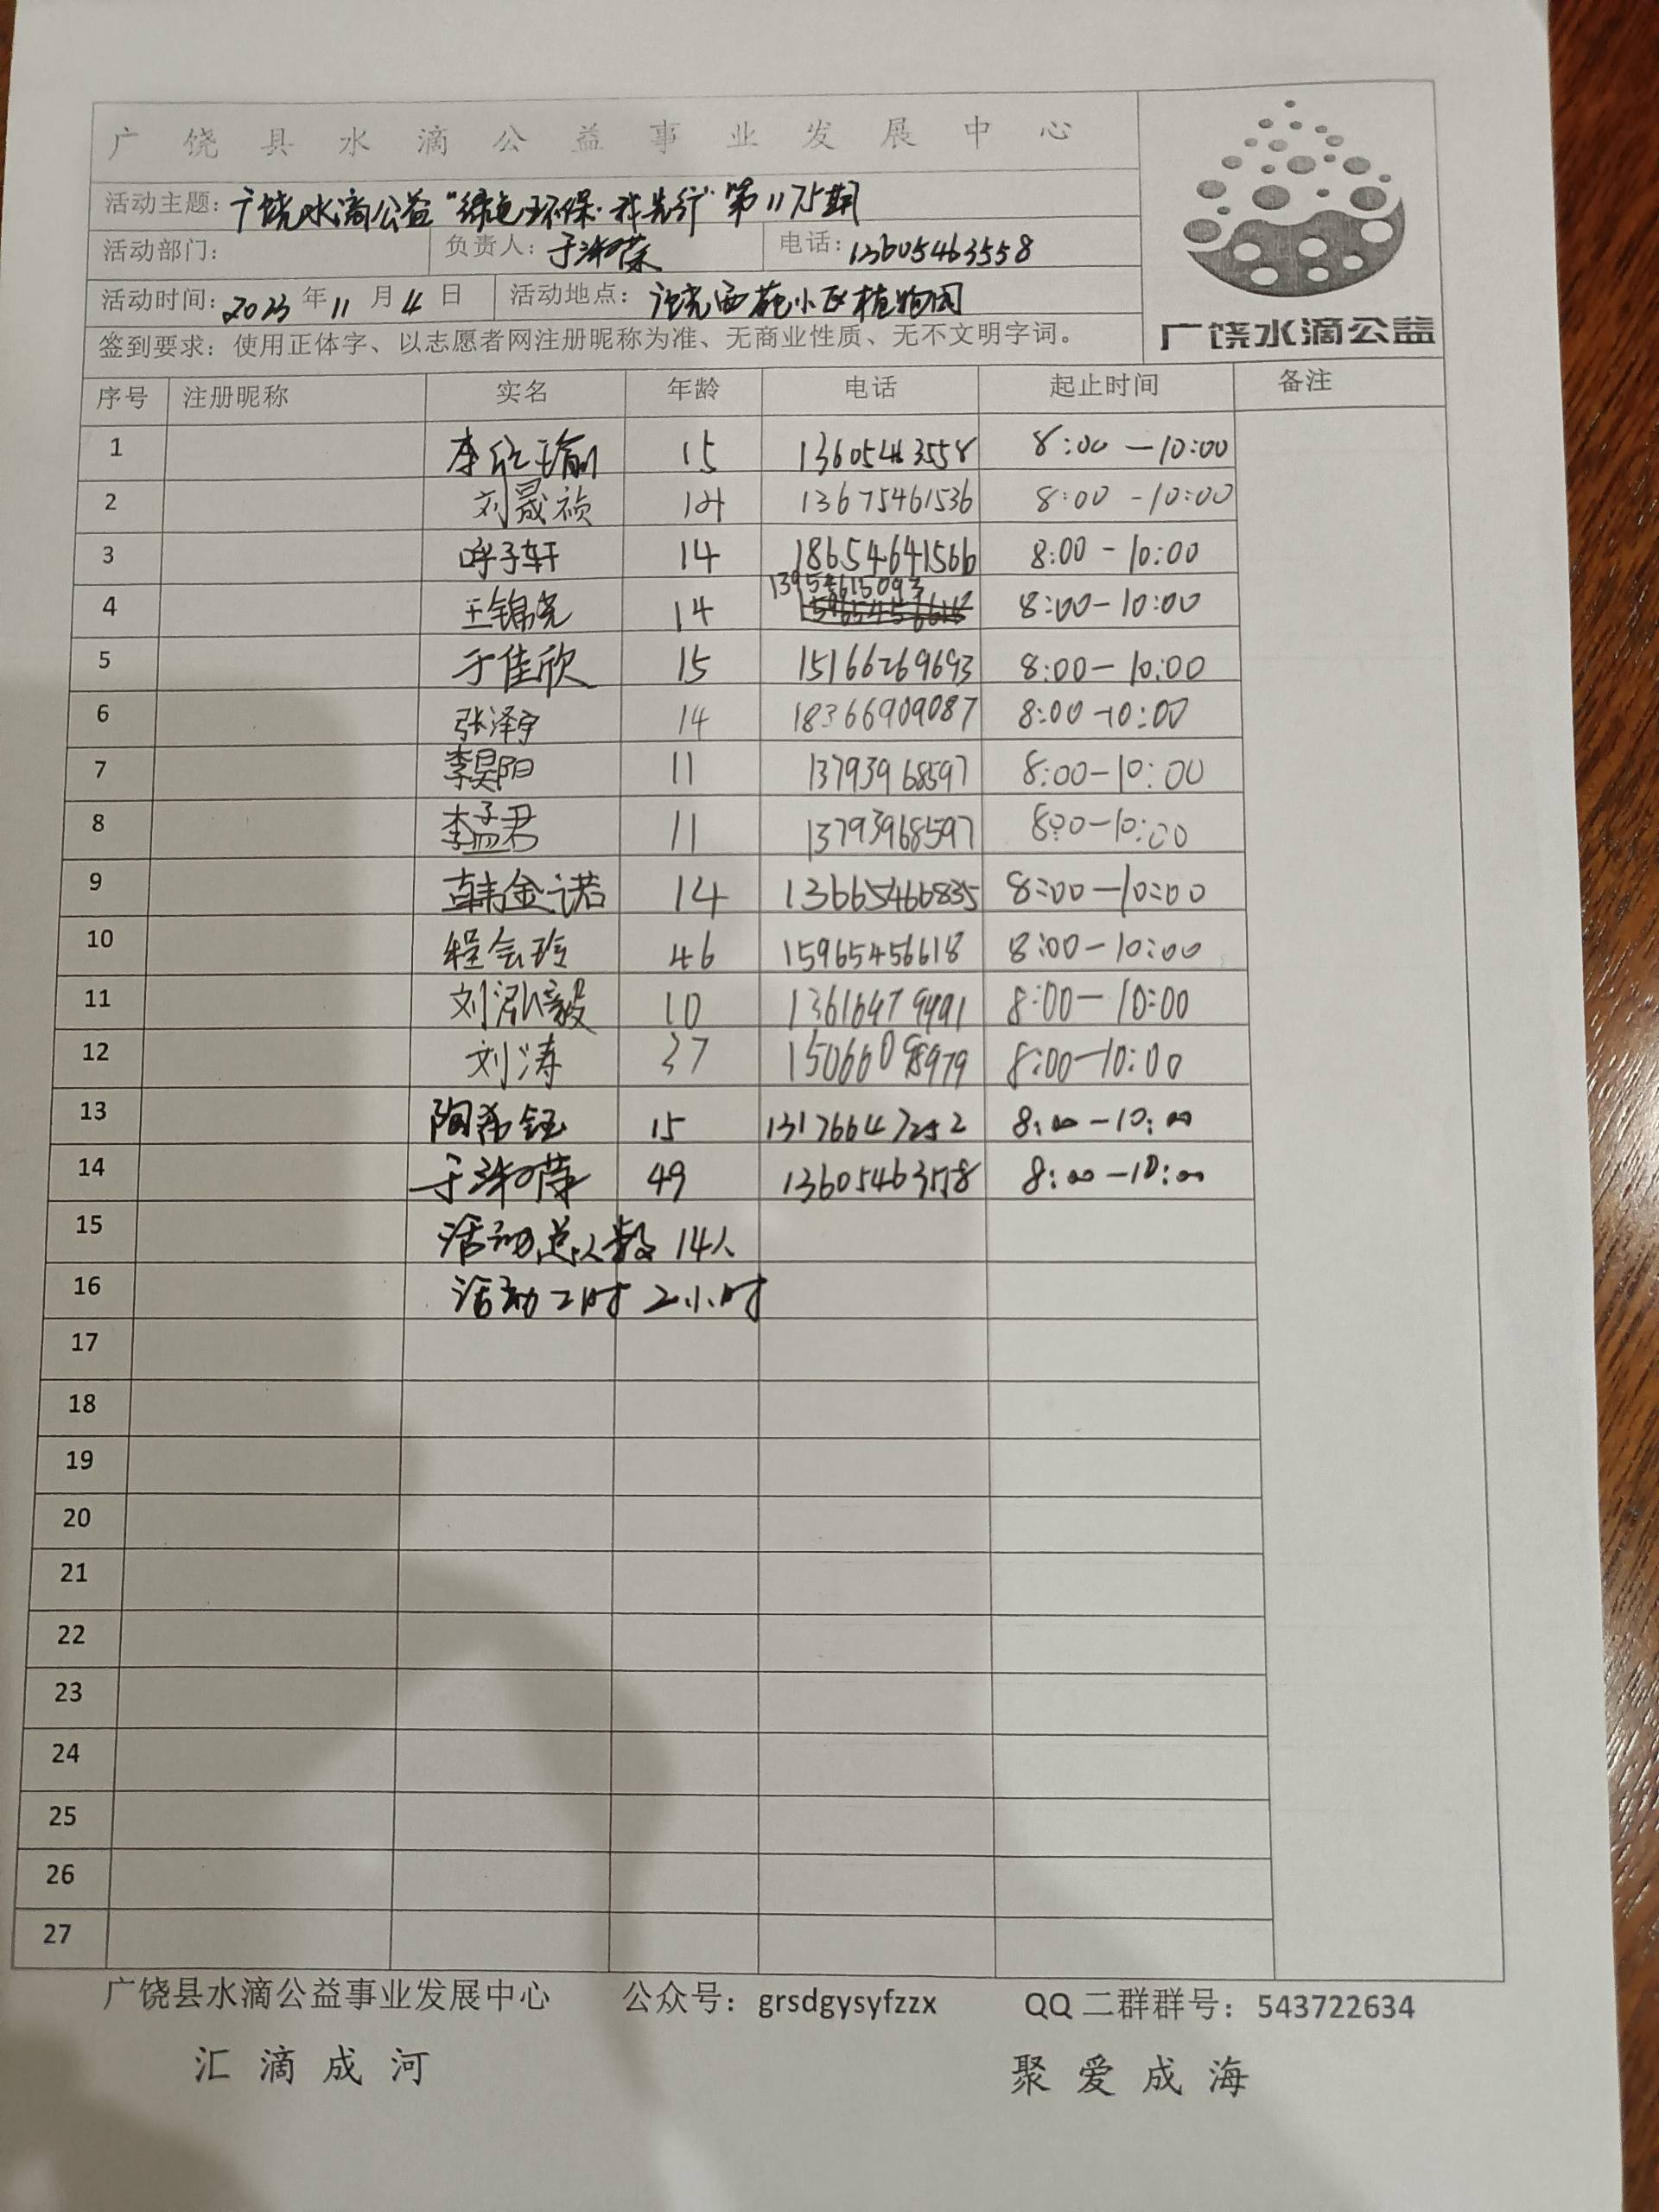 广饶县水滴公益事业发展中心
活动主题：广饶水滴公益“绿色环保·我先行”第1175期
活动部门： 负责人：于洪荣 电话：13605463558
活动时间：2023年11月4日 活动地点：饶西苑小区植物园
签到要求：使用正体字、以志愿者网注册昵称为准、无商业性质、无不文明字词。
广饶水滴公益
序号 注册昵称 实名 年龄 电话 起止时间 备注
1 李欣瑜 15 13605463558 8:00—10:00
2 刘晟祯 14 13675461536 8:00-10:00
3 呼子轩 14 18654641566 8:00-10:00
13954615093
4 王锦尧 14 15965456618 8:00-10:00
5 于佳欣 15 15166269693 8:00—10:00
6 张泽宇 14 18366909087 8:00-10:00
7 李昊阳 11 13793968597 8:00-10:00
8 李孟君 11 13793968597 8:00-10:00
9 韩金诺 14 13665466835 8:00—10:00
10 程会玲 46 15965456618 8:00-10:00
11 刘泓毅 10 13616479491 8:00—10:00
12 刘涛 37 15066098979 8:00-10:00
13 陶希钰 15 13176647252 8:00-10:00
14 于洪荣 49 13605463558 8:00-10:00
15 活动总人数14人
16 活动工时2小时
17
18
19
20
21
22
23
24
25
26
27
广饶县水滴公益事业发展中心 公众号：grsdgysyfzzx QQ二群群号：543722634
汇滴成河 聚爱成海